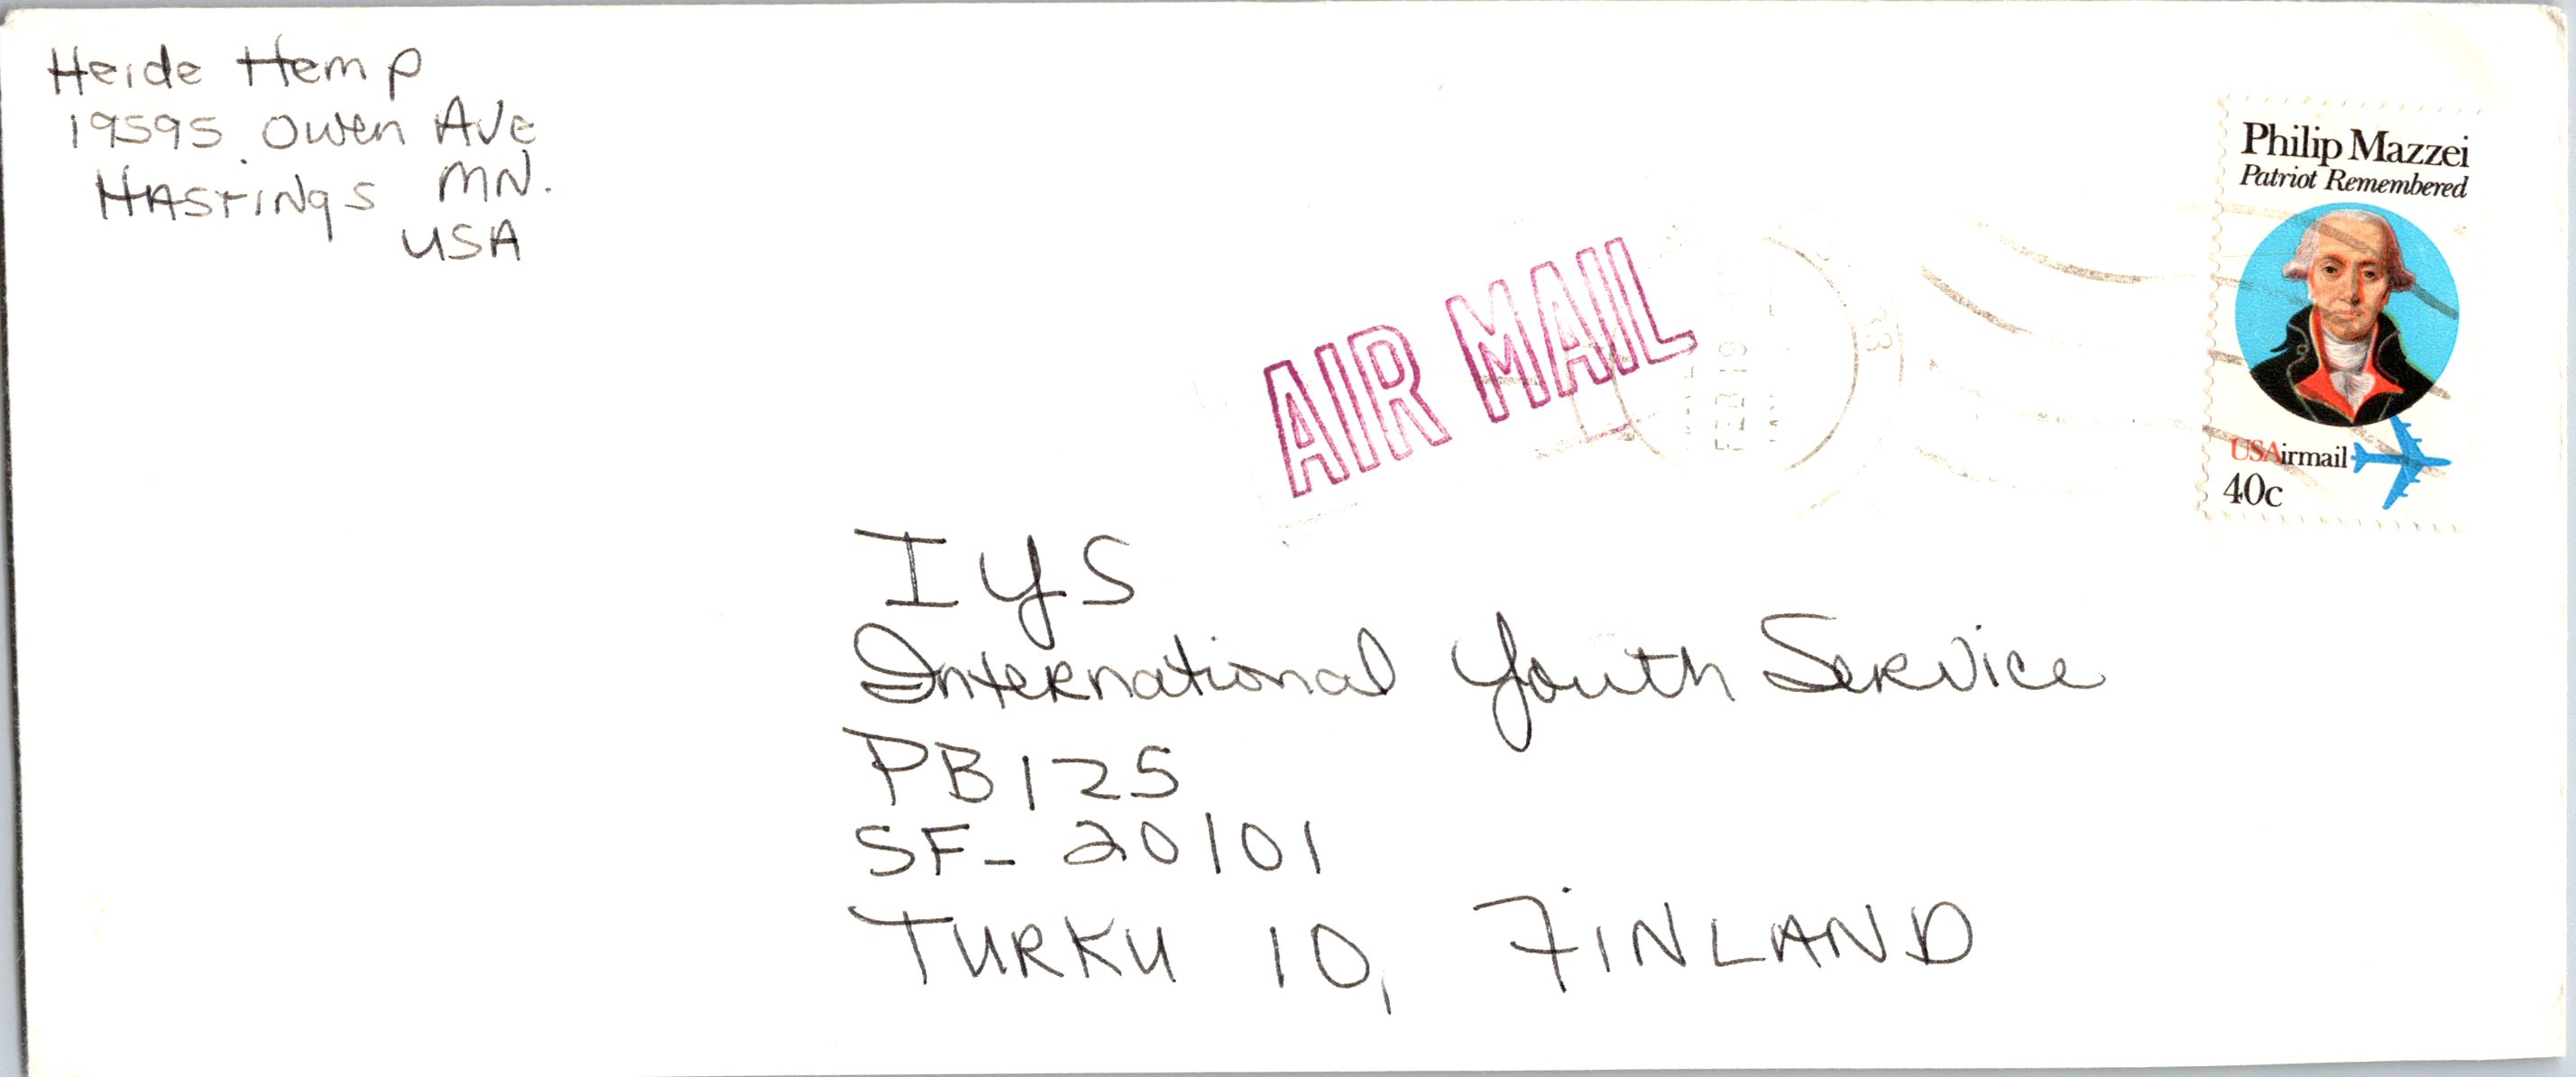 Heide Hemp
19595 Owen Ave
HASTINgS MN.
USA
AIR MAIL
FEB 19
Philip Mazzei
Patriot Remembered
USAirmail
40c
IYS
International Youth Service
PB 125
SF- 20101
TURKU 10, FINLAND